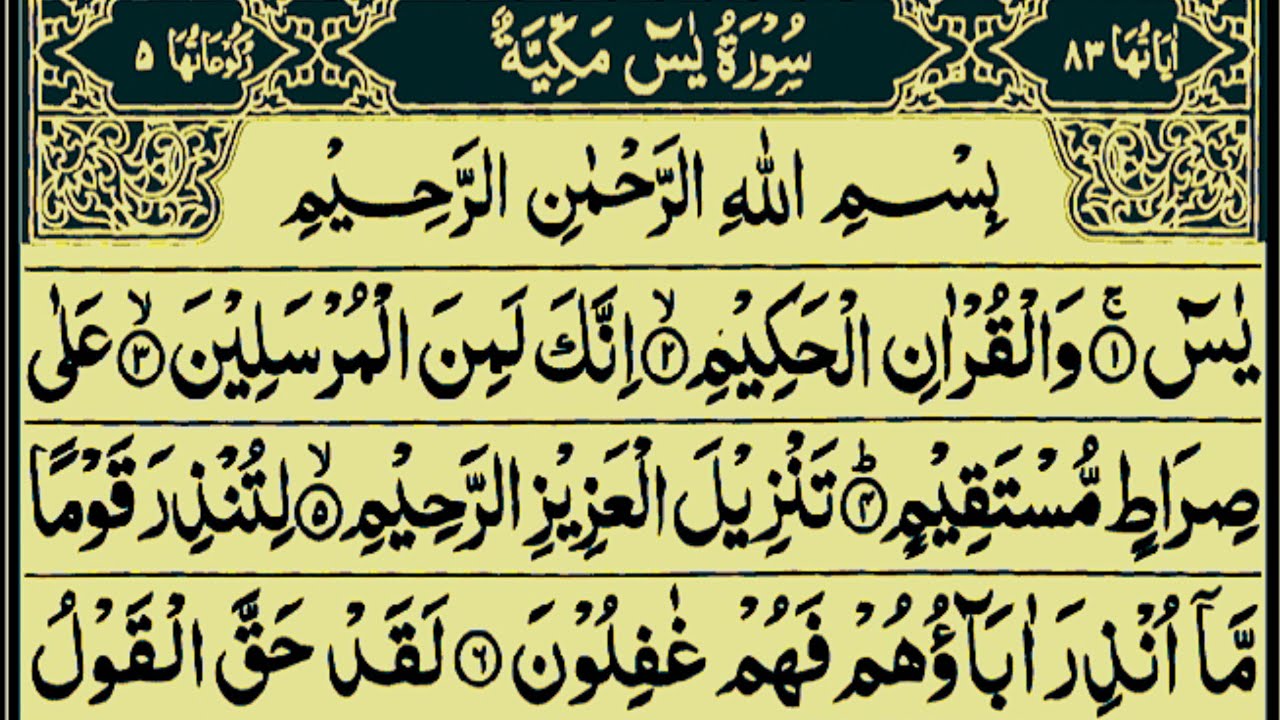 اٰیَاتُهَا ٨٣ سُوْرَةُ یٰسٓ مَكِّیَّةٌ رُكُوْعَاتُهَا ٥
بِسْمِ اللّٰهِ الرَّحْمٰنِ الرَّحِیْمِ
یٰسٓ ۚ‏﴿١﴾ وَالْقُرْاٰنِ الْحَكِیْمِ ۙ‏﴿٢﴾ اِنَّكَ لَمِنَ الْمُرْسَلِیْنَ ۙ‏﴿٣﴾ عَلٰی
صِرَاطٍ مُّسْتَقِیْمٍ ؕ‏﴿۴﴾ تَنْزِیْلَ الْعَزِیْزِ الرَّحِیْمِ ۙ‏﴿۵﴾ لِتُنْذِرَ قَوْمًا
مَّاۤ اُنْذِرَ اٰبَآؤُهُمْ فَهُمْ غٰفِلُوْنَ ﴿۶﴾ لَقَدْ حَقَّ الْقَوْلُ